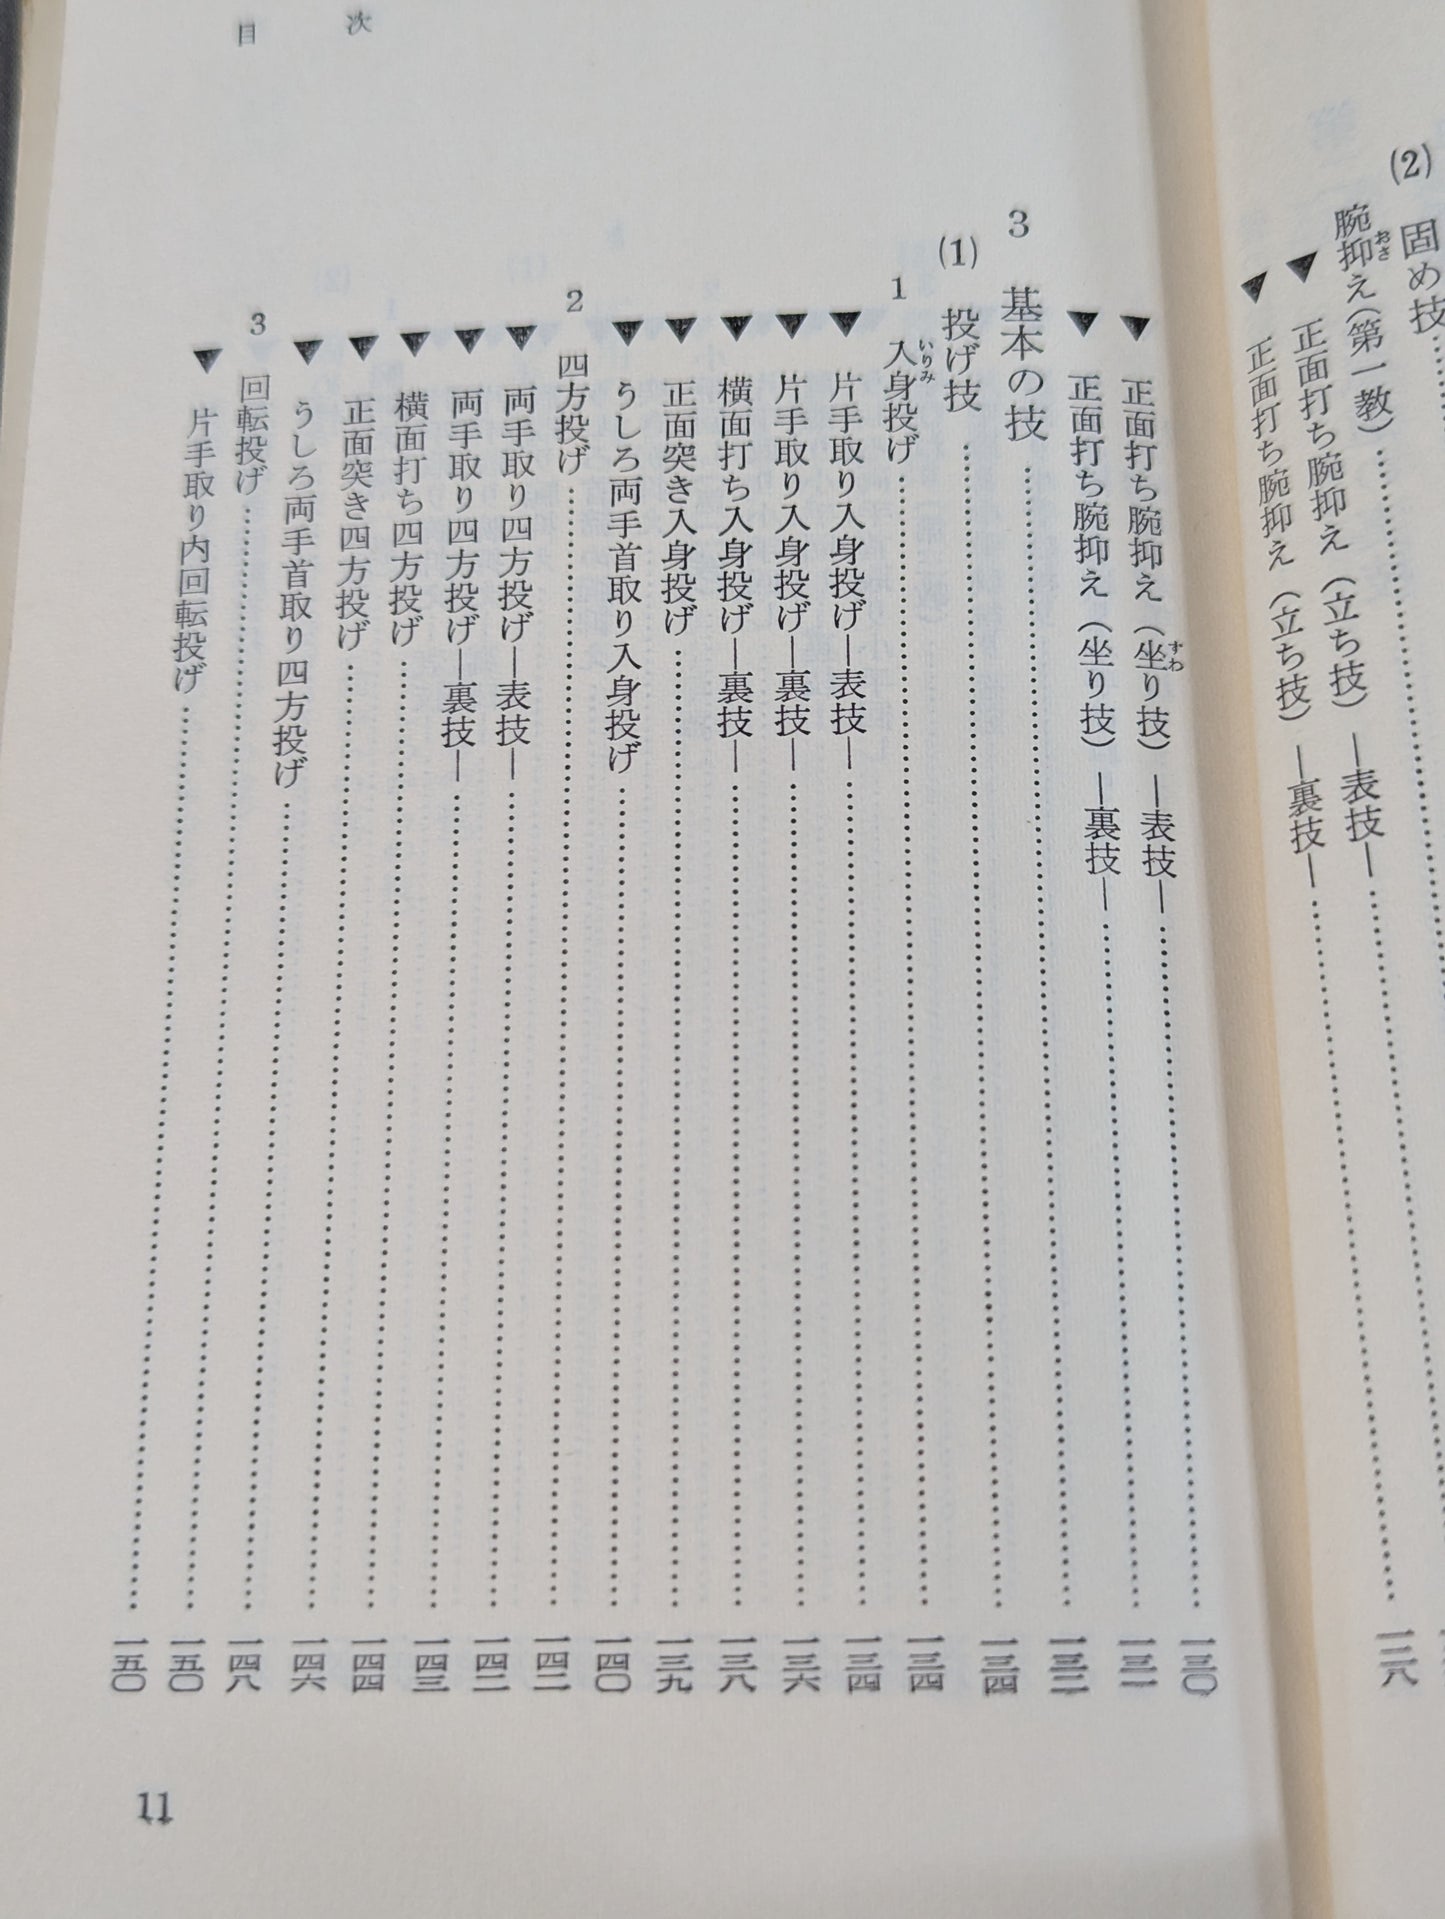 (2) 固め技
腕抑え(第一教)
おさ
▼ 正面打ち腕抑え(立ち技)―表技―
▼ 正面打ち腕抑え(立ち技)―裏技―……一二八
▼ 正面打ち腕抑え(坐り技)―表技―……一三〇
すわ
▼ 正面打ち腕抑え(坐り技)―裏技―……一三一
3 基本の技……一三三
(1) 投げ技……一三四
1 入身投げ……一三四
いりみ
▼ 片手取り入身投げ―表技―……一三四
▼ 片手取り入身投げ―裏技―……一三六
▼ 横面打ち入身投げ―裏技―……一三八
▼ 正面突き入身投げ……一三九
▼ うしろ両手首取り入身投げ……一四〇
2 四方投げ……一四二
▼ 両手取り四方投げ―表技―……一四二
▼ 両手取り四方投げ―裏技―……一四三
▼ 横面打ち四方投げ……一四四
▼ 正面突き四方投げ……一四六
▼ うしろ両手首取り四方投げ……一四八
3 回転投げ……一五〇
▼ 片手取り内回転投げ……一五〇
目次
11